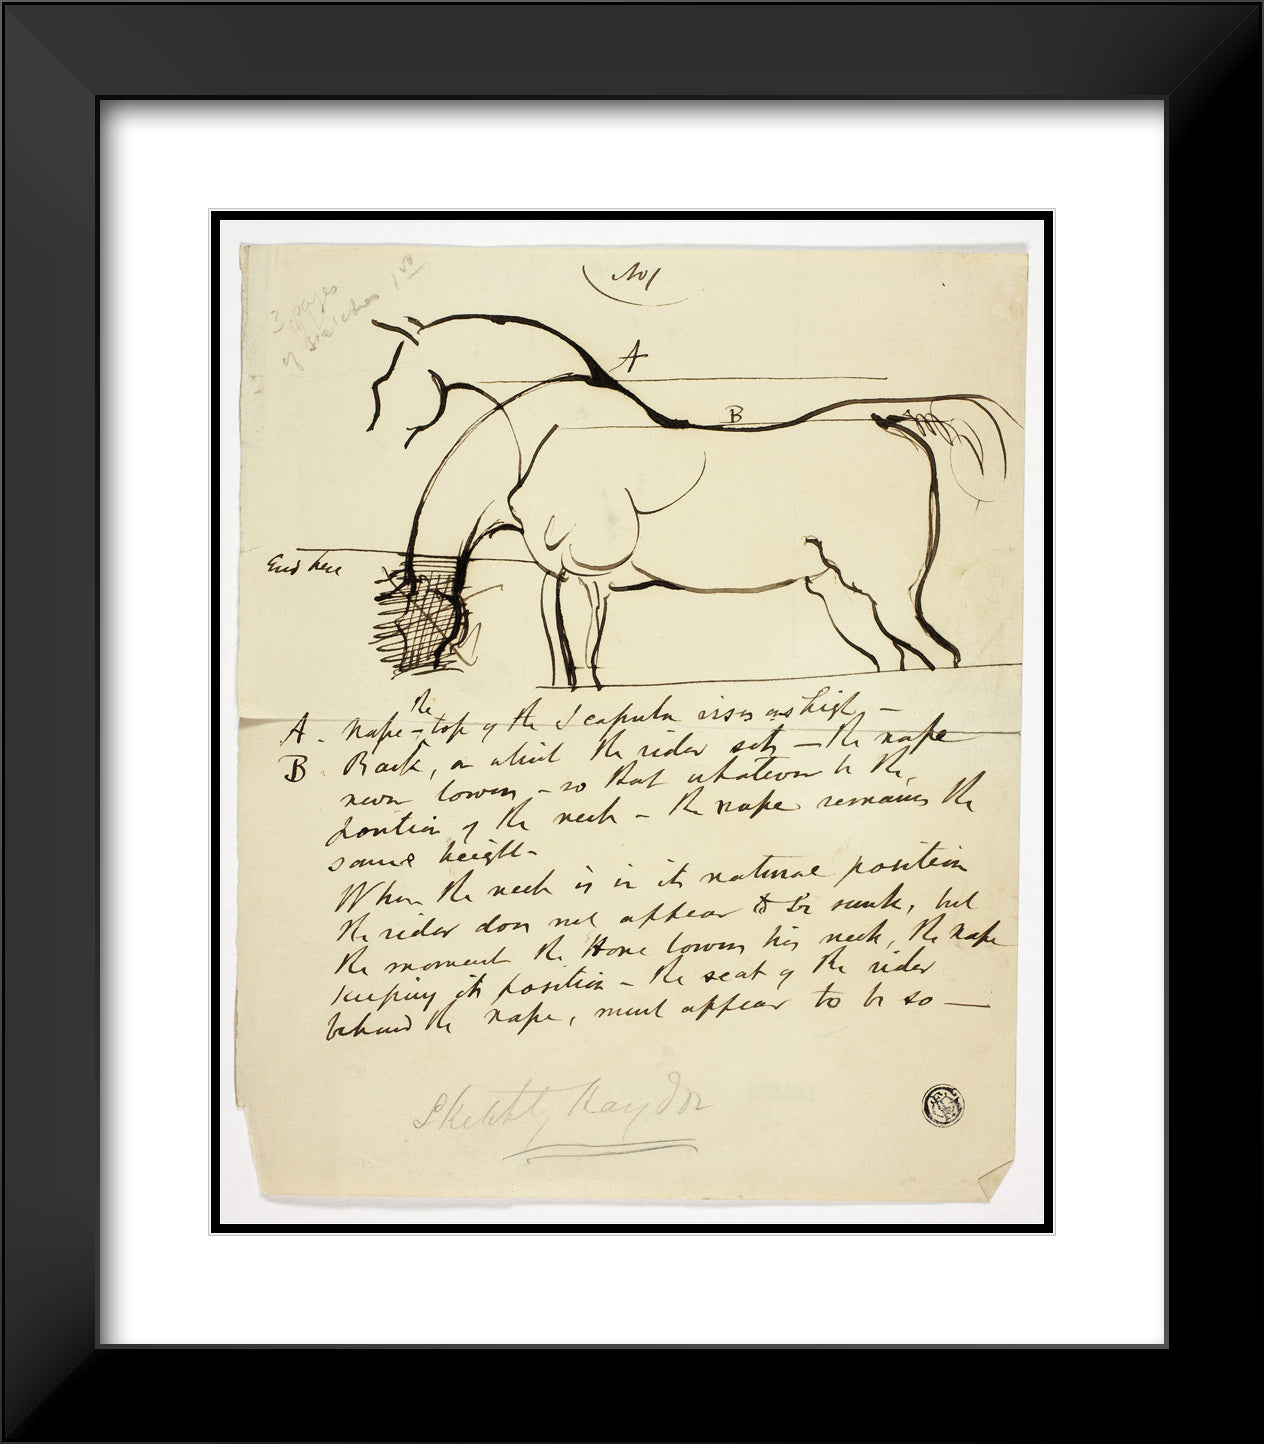 No 1
3 pages
of sketches 1st
A
B
End here
the
A. Nape - top of the Scapula rises as high -
B Back, on which the rider sits - the nape
never lowers - so that whatever be the
position of the neck - the nape remains the
same height -
When the neck is in its natural position
the rider does not appear to be sunk, but
the moment the Horse lowers his neck, the nape
keeping its position - the seat of the rider
behind the nape, must appear to be so —
Sketch by Haydon